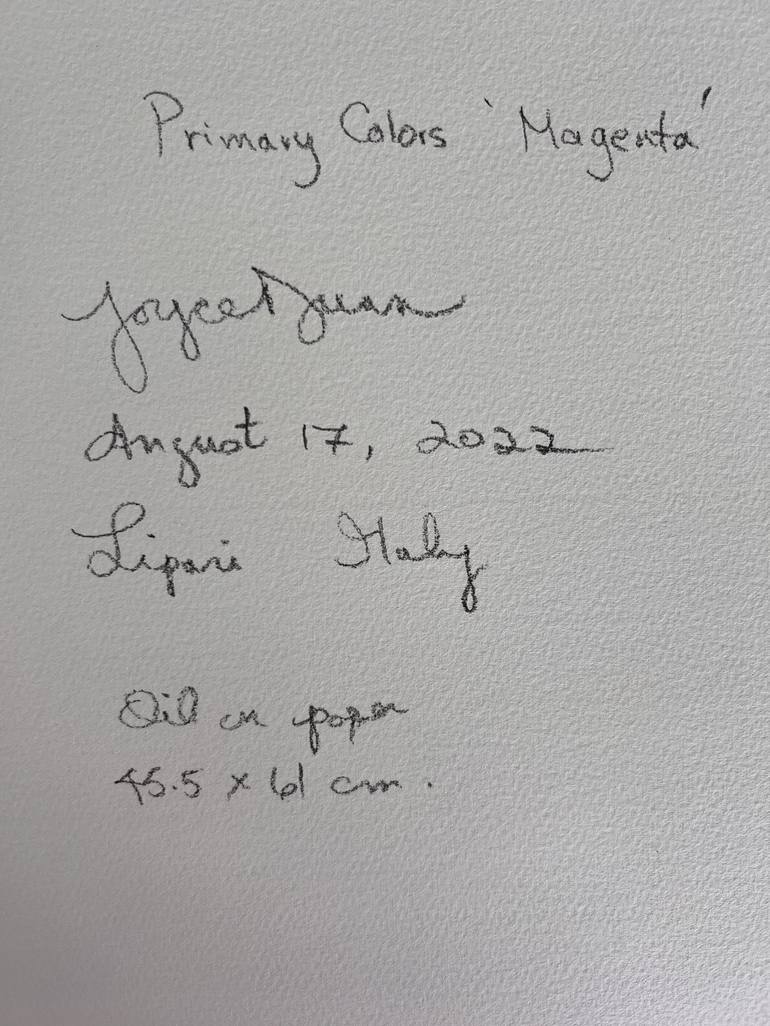 Primary Colors 'Magenta'
Joyce Duan
August 17, 2022
Lipari Italy
Oil on paper
45.5 x 61 cm.